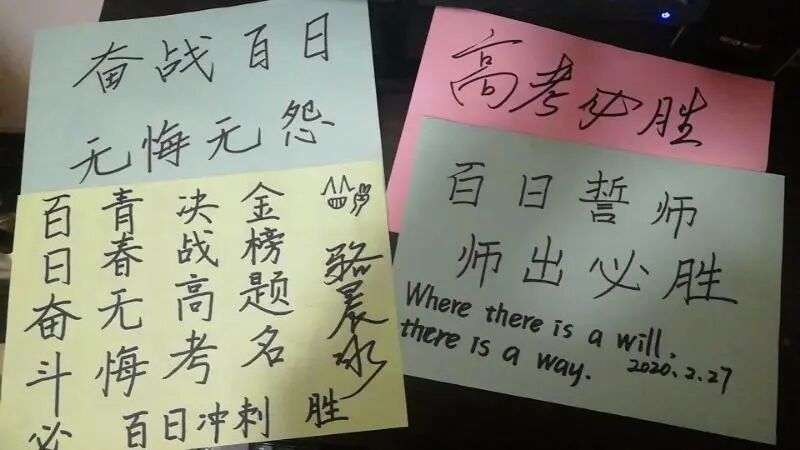 奋战百日
无悔无怨
百日奋斗必
青春无悔
决战高考
金榜题名
骆晨冰
百日冲刺 胜
高考必胜
百日誓师
师出必胜
Where there is a will,
there is a way.
2020.2.27